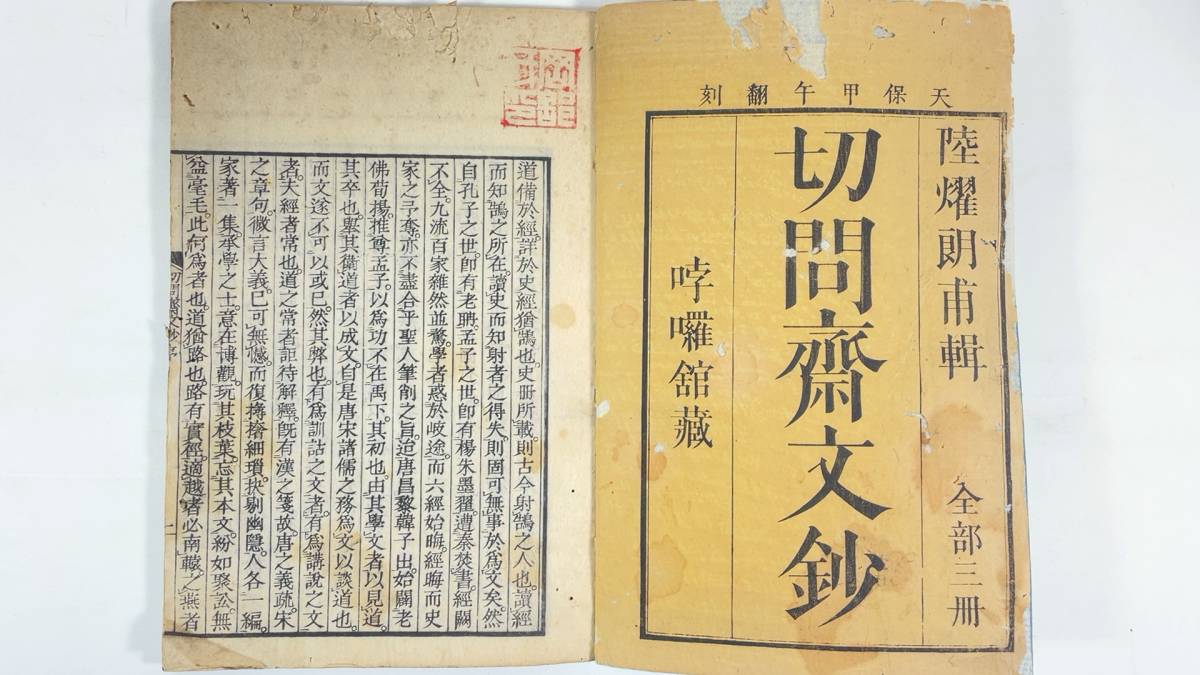 天保甲午翻刻
陸燿朗甫輯 全部三冊
切問齋文鈔
哱囉舘藏
道備於經詳於史經猶鵠也史冊所載則古今射鵠之人也讀經
而知鵠之所在讀史而知射者之得失則固可無事於爲文矣然
自孔子之世卽有老聃孟子之世卽有楊朱墨翟遭秦焚書經闕
不全九流百家雜然並騖學者惑於岐途而六經始晦經晦而史
家之予奪亦不盡合乎聖人筆削之旨迨唐昌黎韓子出始闢老
佛荀揚推尊孟子以爲功不在禹下其初也由其學文者以見道
其卒也農其衞道者以成文自是唐宋諸儒之務爲文以談道也
而文遂不可以或已然其弊也有爲訓詁之文者有爲講說之文
者夫經者常也道之常者詎待解釋旣有漢之箋故唐之義疏宋
之章句微言大義已可無憾而復搏撦細瑣抉剔幽隱人各一編
家著一集承學之士意在博觀玩其枝葉忘其本文紛如聚訟無
益毫毛此何爲者也道猶路也路有實徑適越者必南轅之燕者
切問齋文鈔序 一